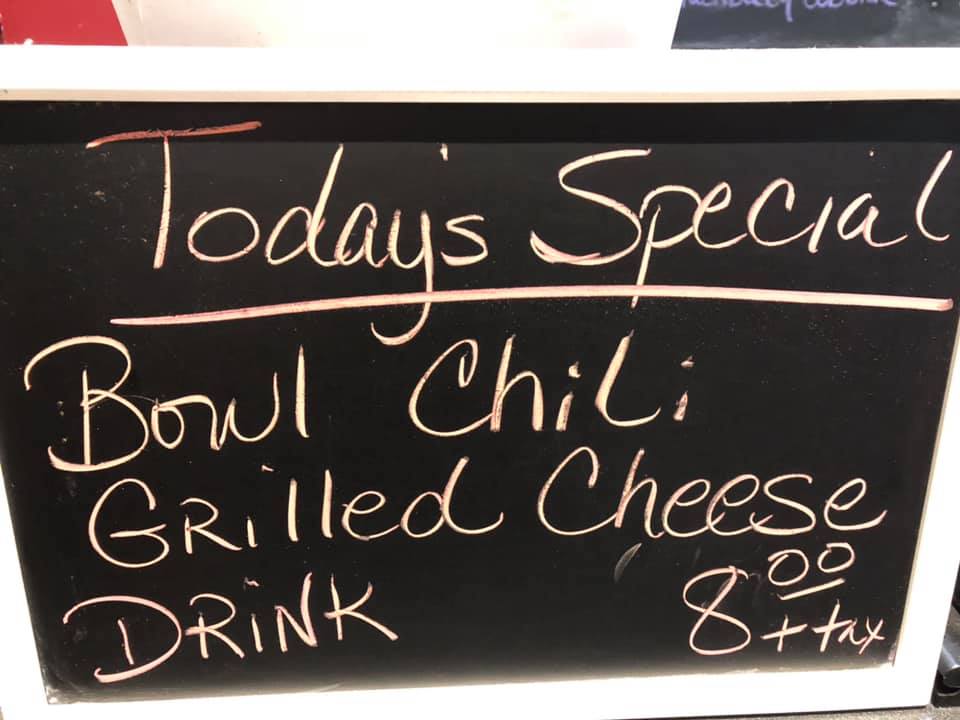 Today's Special
Bowl Chili
Grilled Cheese
DRINK 8.00 + tax